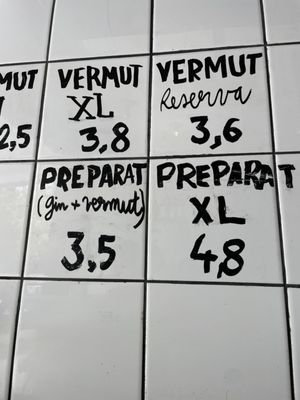 MUT
2,5
VERMUT
XL
3,8
VERMUT
Reserva
3,6
PREPARAT
(gin + vermut)
3,5
PREPARAT
XL
4,8